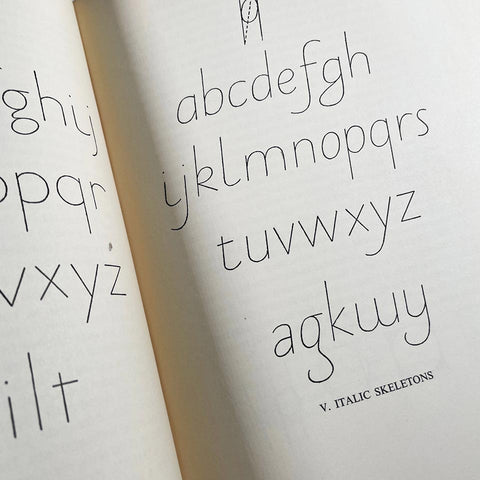 ghij
pqr
vxyz
ilt
q
abcdefgh
ijklmnopqrs
tuvwxyz
agkwy
V. ITALIC SKELETONS